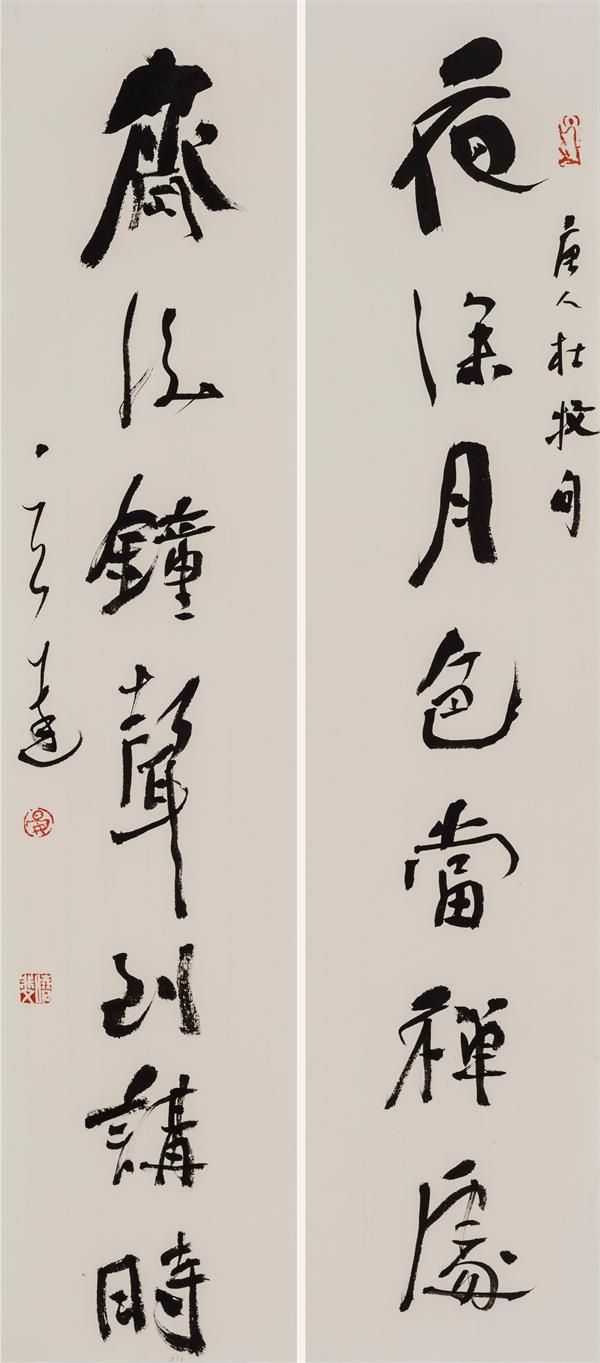 唐人杜牧句
夜深月色當禪處
齋後鐘聲到講時